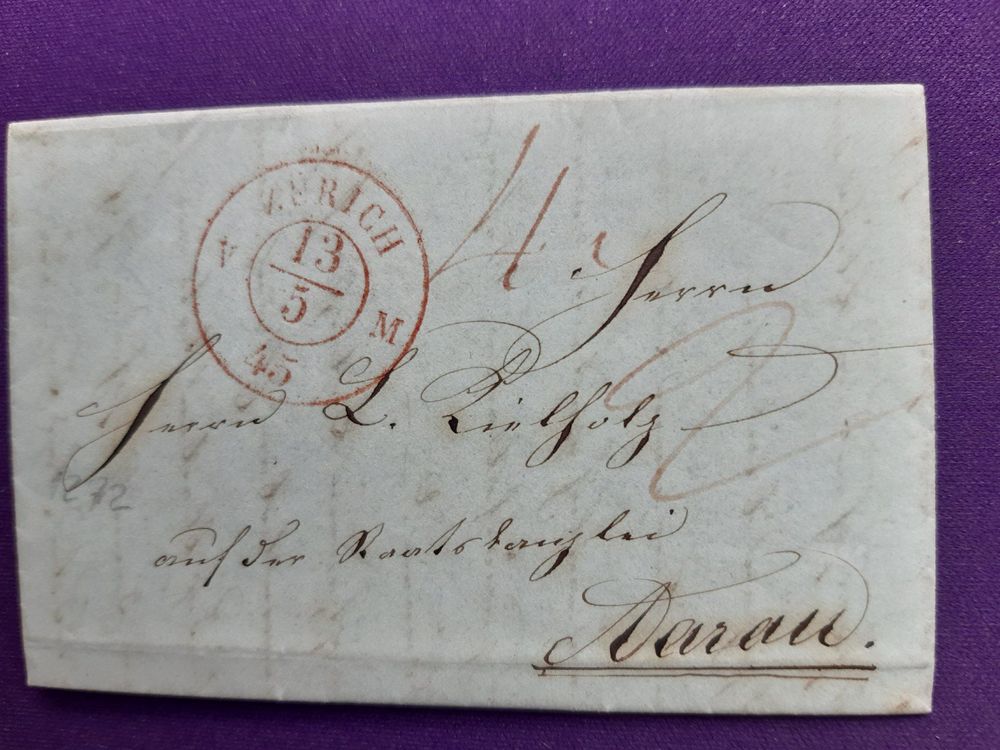 ZÜRICH
V 13 M
5
45
4
Herrn
Herrn L. Kielholz
auf der Staatskanzlei
Aarau.